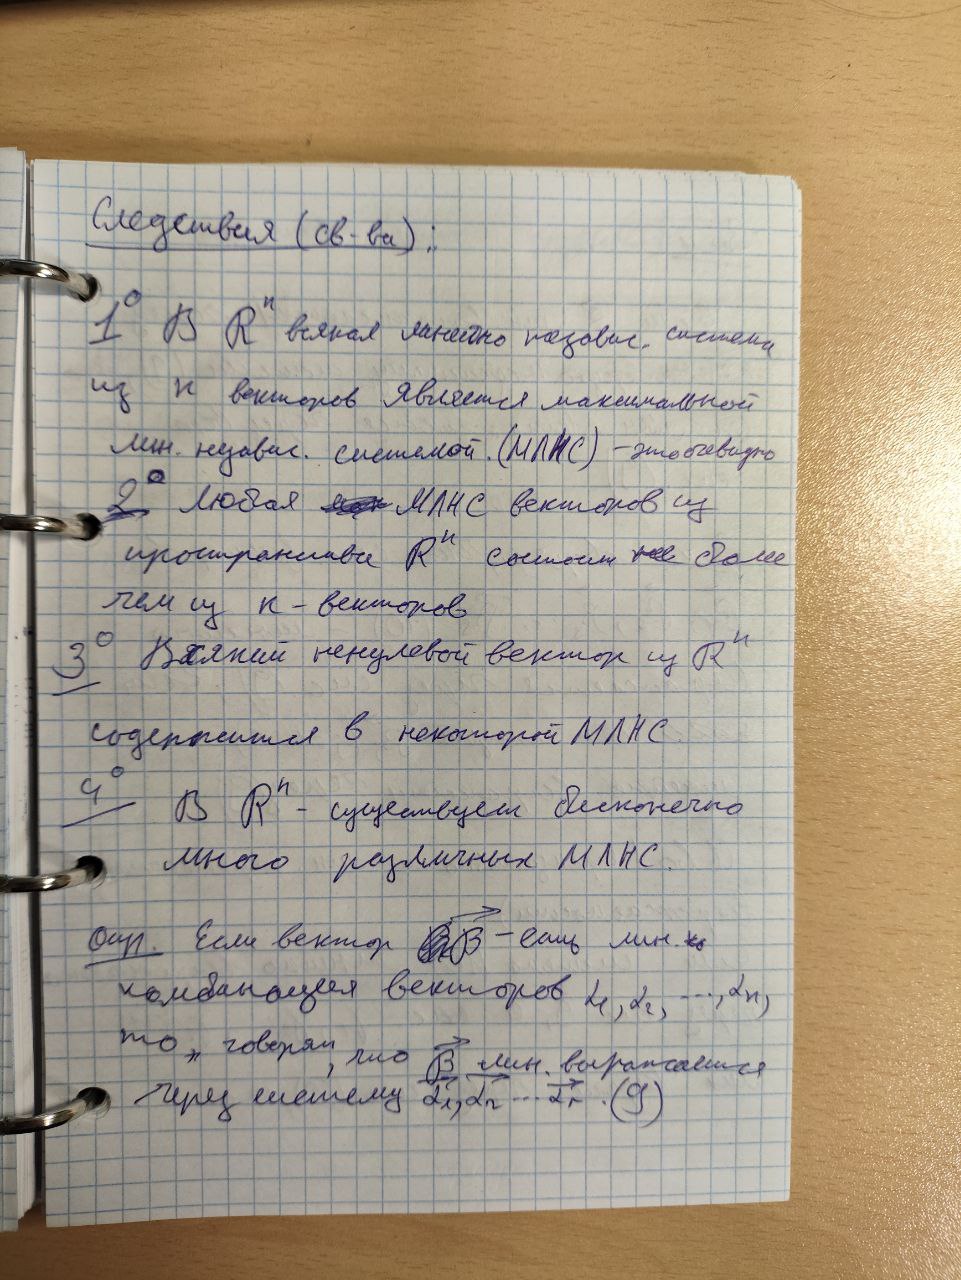 Следствия (св-ва):
1° В Rⁿ всякая линейно независ. система
из n векторов является максимальной
лин. независ. системой. (МЛНС) - это очевидно
2° Любая МЛНС векторов из
пространства Rⁿ состоит не более
чем из n - векторов
3° Всякий ненулевой вектор из Rⁿ
содержится в некоторой МЛНС.
4° В Rⁿ - существует бесконечно
много различных МЛНС.
Опр. Если вектор β⃗ - есть лин.
комбинация векторов α₁, α₂, ..., αₙ,
то „ говорят, что β⃗ лин. выражается
через систему α⃗₁, α⃗₂ ... α⃗ₙ. (9)